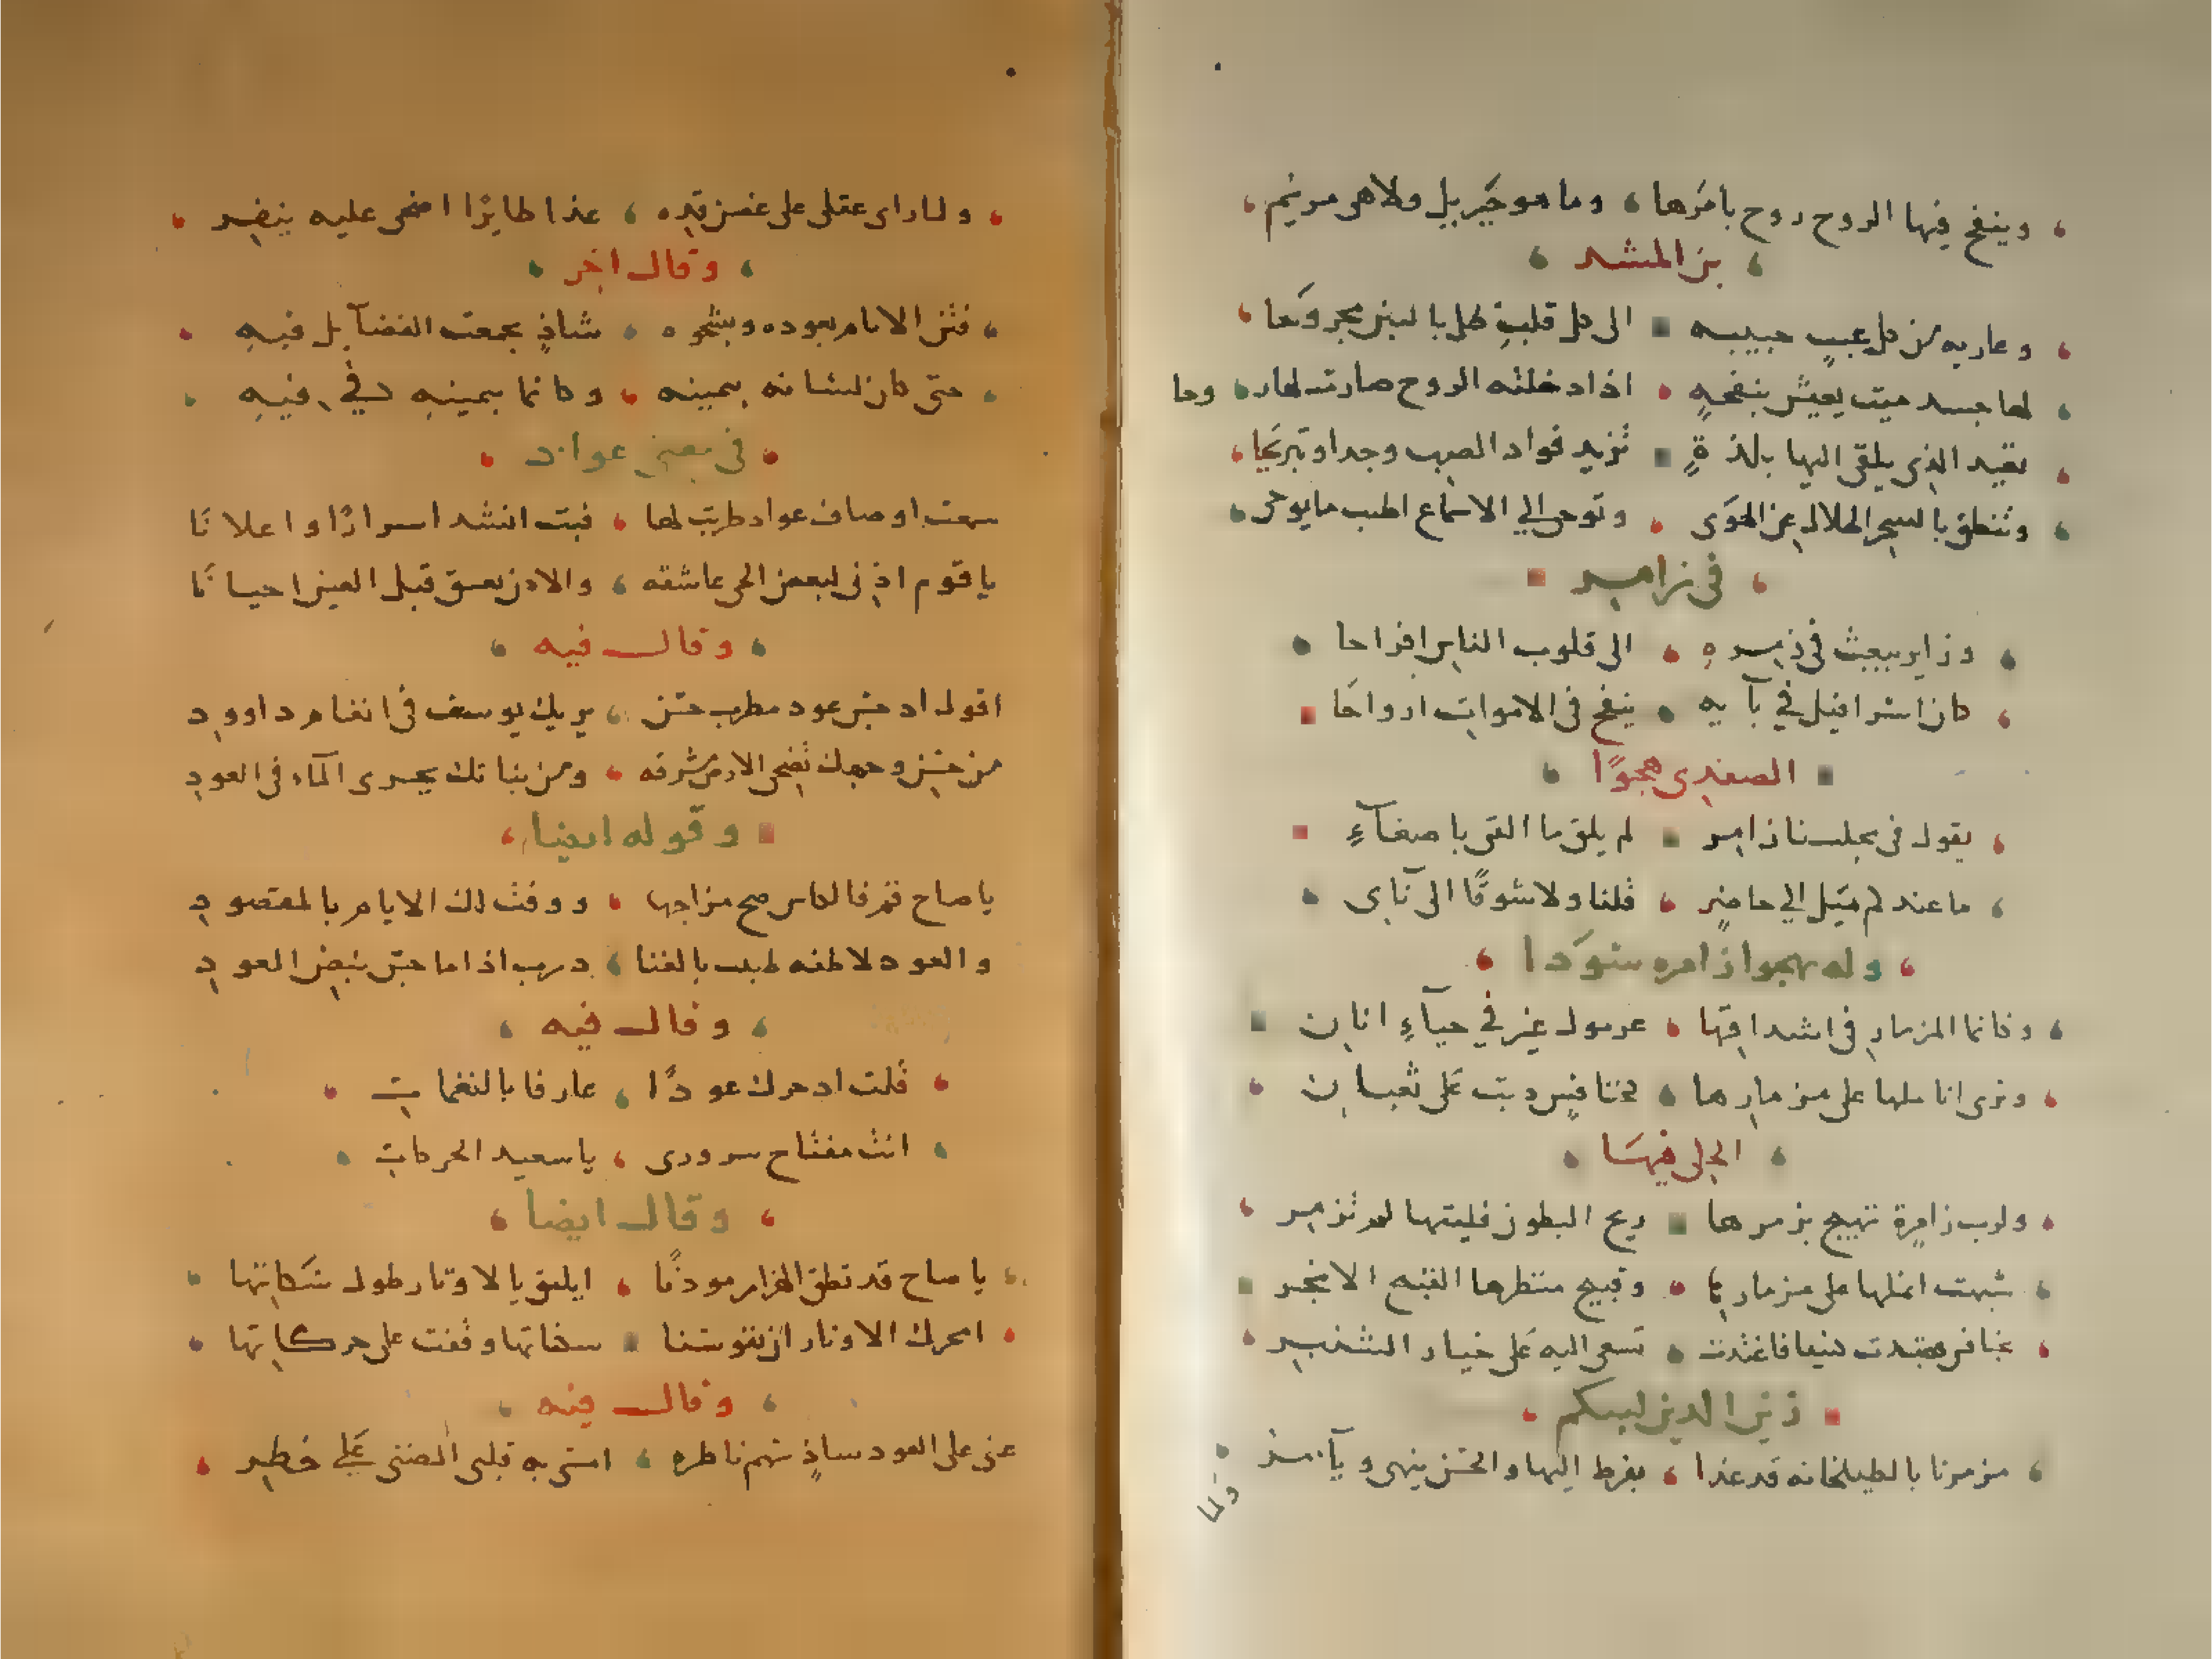 وينفخ فيها الروح روح بامرها وما هو جبريل ولا هي مريم
بن المشد
وعاريه من كل عيب حبيبه الى كل قلب بالبين مجروحا
لها جسد ميت يعيش بنفخه اذا دخلته الروح صارت لها روحا
الذي يلقى اليها بلذة تزيد فواد الصب وجدا وتبريحا
وتنطق بالسحر الحلال عن الهوى وتوحي الي الاسماع اطيب ما يوحى
في زامر
وزامر يبعث في زمره الى قلوب الناس افراحا
كان اسرافيل في نايه ينفخ في الاموات ارواحا
الصفدي هجوًا
يقول في مجلسنا زامر لم يلق ما القى باصغآءٍ
ما عندكم ميل الي حاضر قلنا ولا شوقًا الى نآى
وله يهجوا زامره سودا
وكانما المزمار في اشداقها في حيآء اتان
وترى اناملها على مزمارها كخنافس دبت على ثعبان
الحلي فيها
ولرب زامرة تهيج بزمرها ريح البطون فليتها لم تزمر
شبهت انملها على مزمارها وقبيح منظرها القبيح الابخر
بخنافس كنيفا فاغتدت تسعى اليه على خيار الشنبر
زين الدين
مزمرنا بالطبلخانه قد غدا اليها والحسن ينهى ويآمر
ولما
ولما راى عقلى على غصن قده غدا طايرًا اضحى عليه ينفر
وقال اخر
فتن الانام بعوده وبشجوه شاذٍ تجمعت الفضآيل فيه
حتى كان لسانه بيمينه وكانما بيمينه في فيه
في بعض عواد
سمعت اوصاف عواد طربت لها فبت انشد اسرارًا واعلانًا
يا قوم اذني لبعض الحي عاشقه والاذن تعشق قبل العين احيانًا
وقال فيه
اقول اذ جس عود مطرب حسن يريك يوسف في انغام داوود
من حسن وجهك تضحى الارض مشرقه ومن بنانك يجرى المآء في العود
وقوله ايضا
يا صاح قم فالكاس صح مزاجها ووفت لك الايام بالمقصود
والعود طبيب بالغنا درب اذا ما جس نبض العود
وقال فيه
قلت اذ حرك عودًا عارفا بالنغمات
انت مفتاح سروري يا سعيد الحركات
وقال ايضا
يا صاح قد نطق الهزار موذنًا ايليق بالاوتار طول سكاتها
امحرك الاوتار ان نفوسنا سكناتها وقفت على حركاتها
وقال فيه
غنى على العود شاذٍ سهم ناظره امسى به قلبي المضنى على خطر